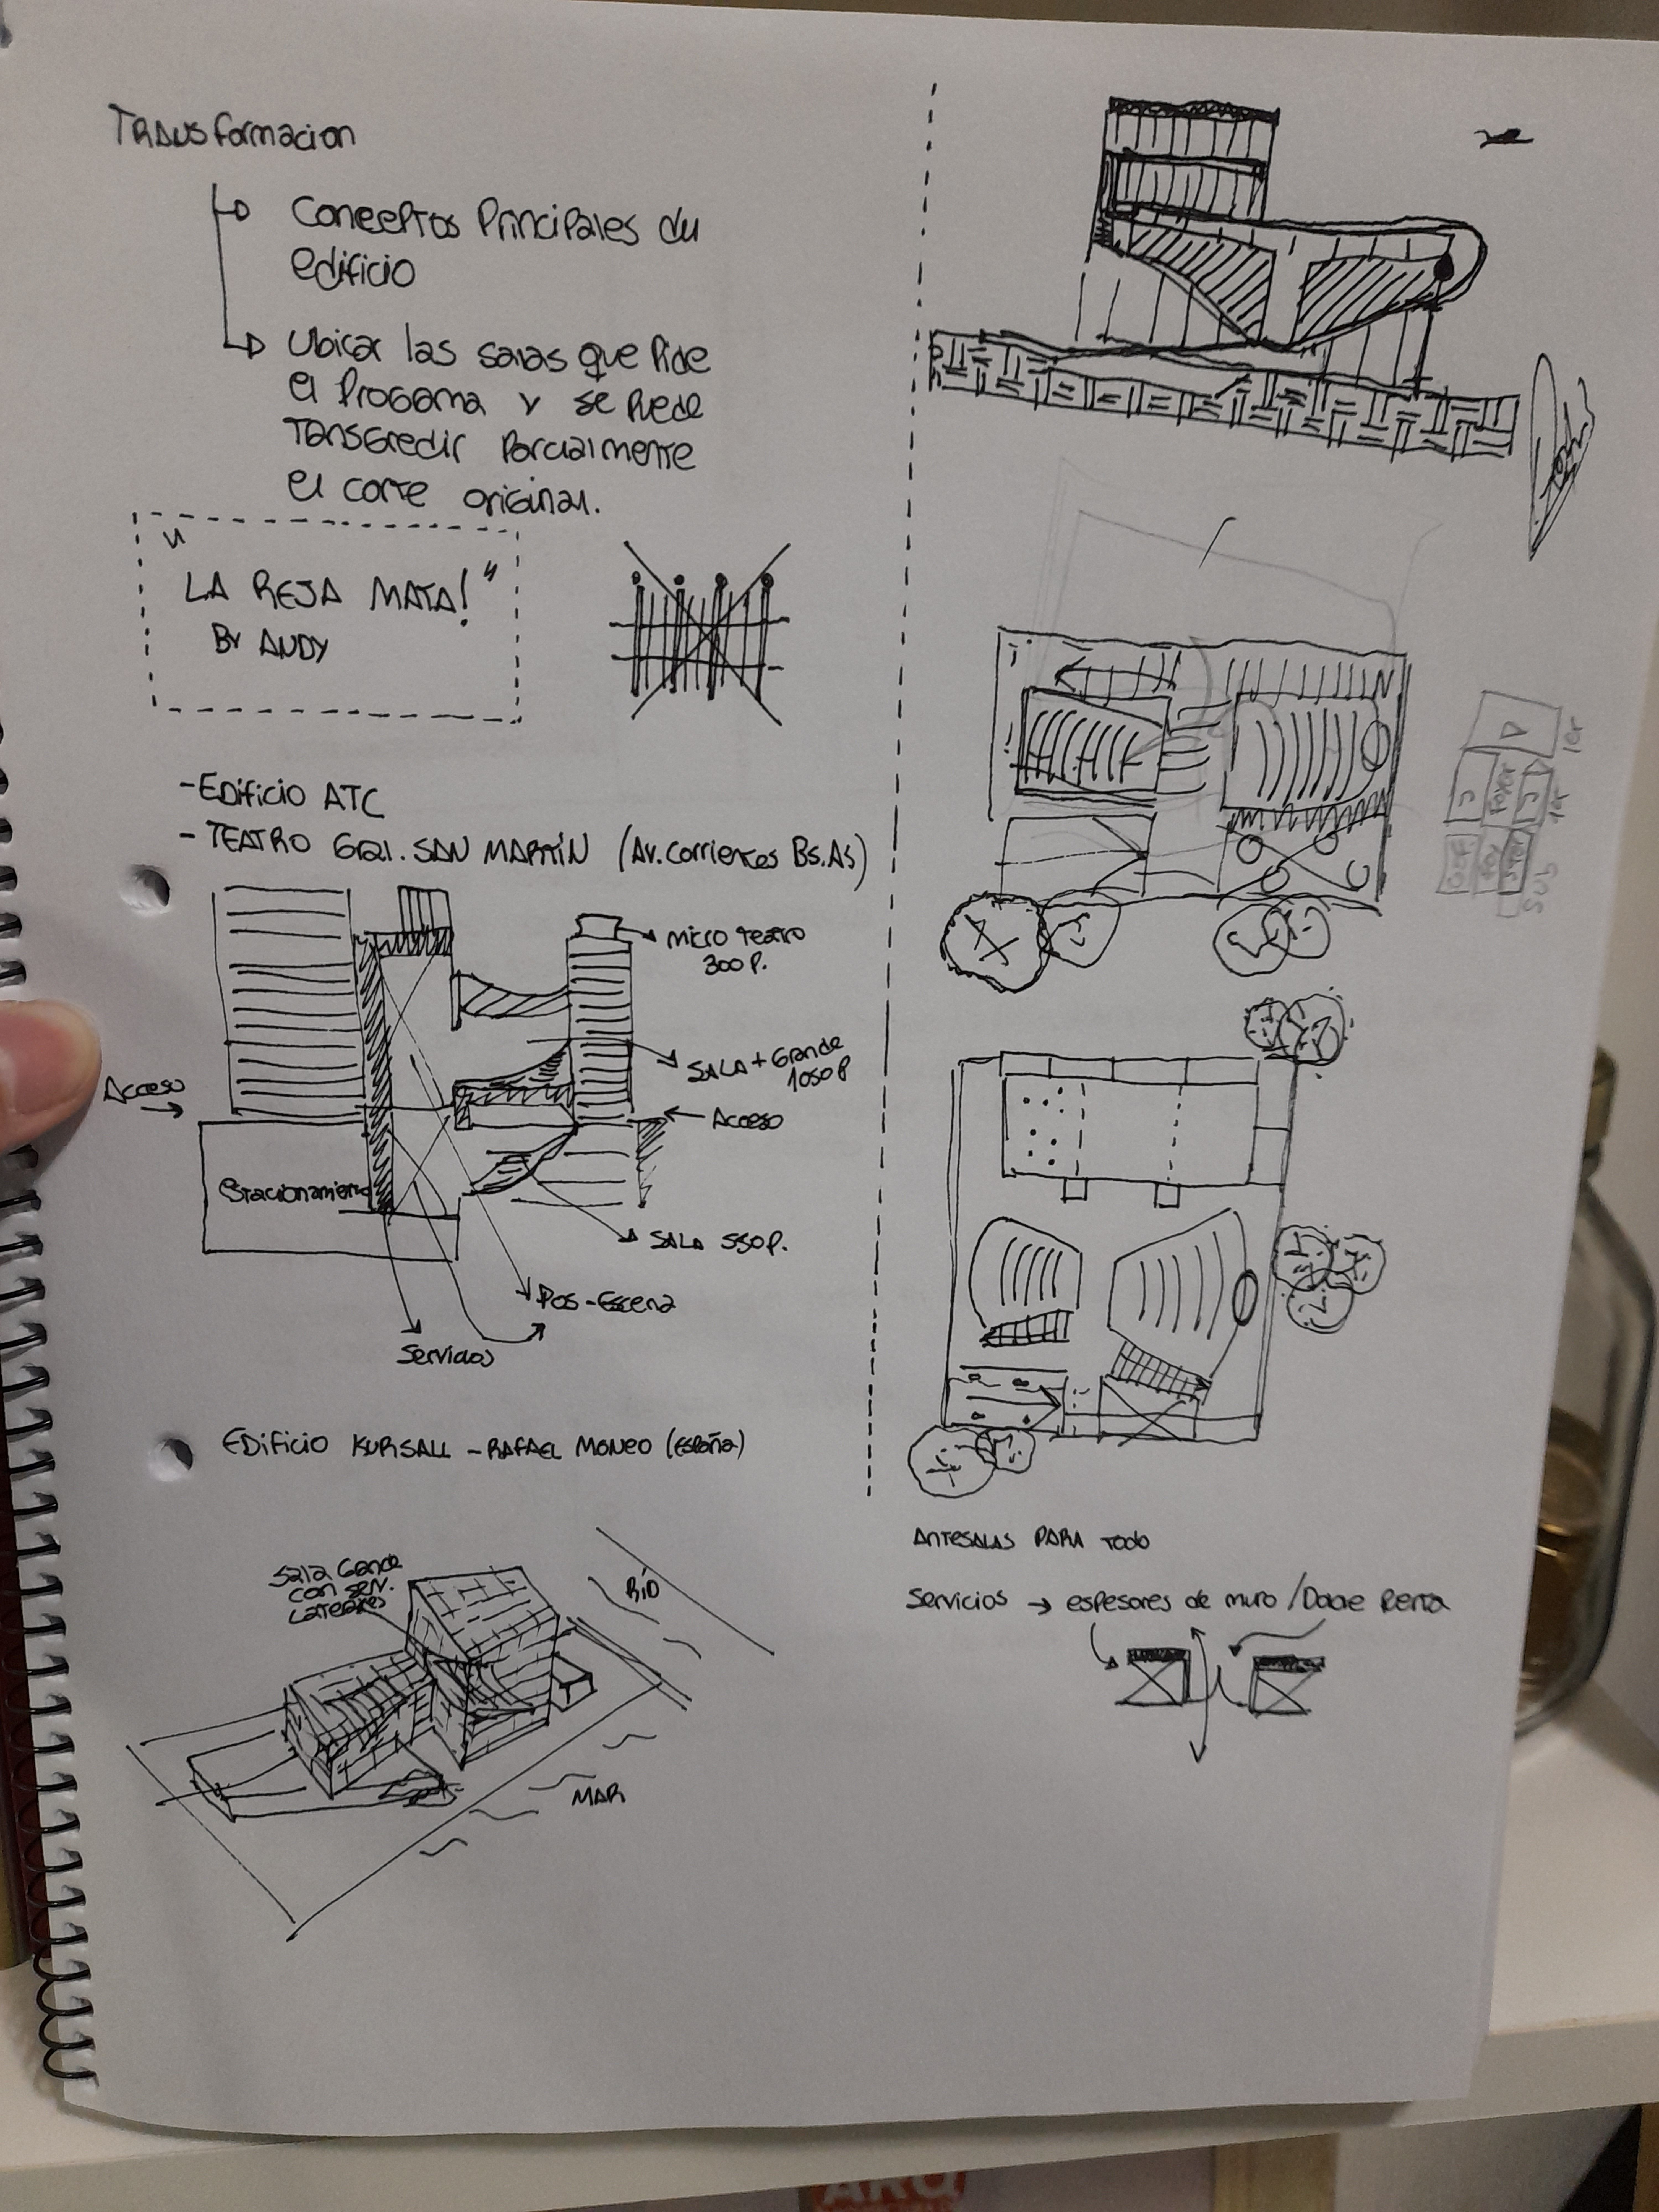 Transformacion
Conceptos Principales du
edificio
Ubicar las salas que Pide
el Progama y se Puede
Tansgredir Parcialmente
el corte original.
"LA REJA MATA!"
By ANDY
- Edificio ATC
- TEATRO Gral. SAN MARTÍN (Av. Corrientes Bs.As)
Micro teatro
300 P.
SALA + Grande
1050 P
Acceso
Acceso
Estacionamiento
SALA 550 P.
Pos-Escena
Servicios
Edificio KURSALL - RAFAEL MONEO (España)
Sala Gande
con serv.
Laterales
RÍO
MAR
ANTESALAS PARA TODO
Servicios → espesores de muro /
1er
Foyer
1er
Sub
ARQ